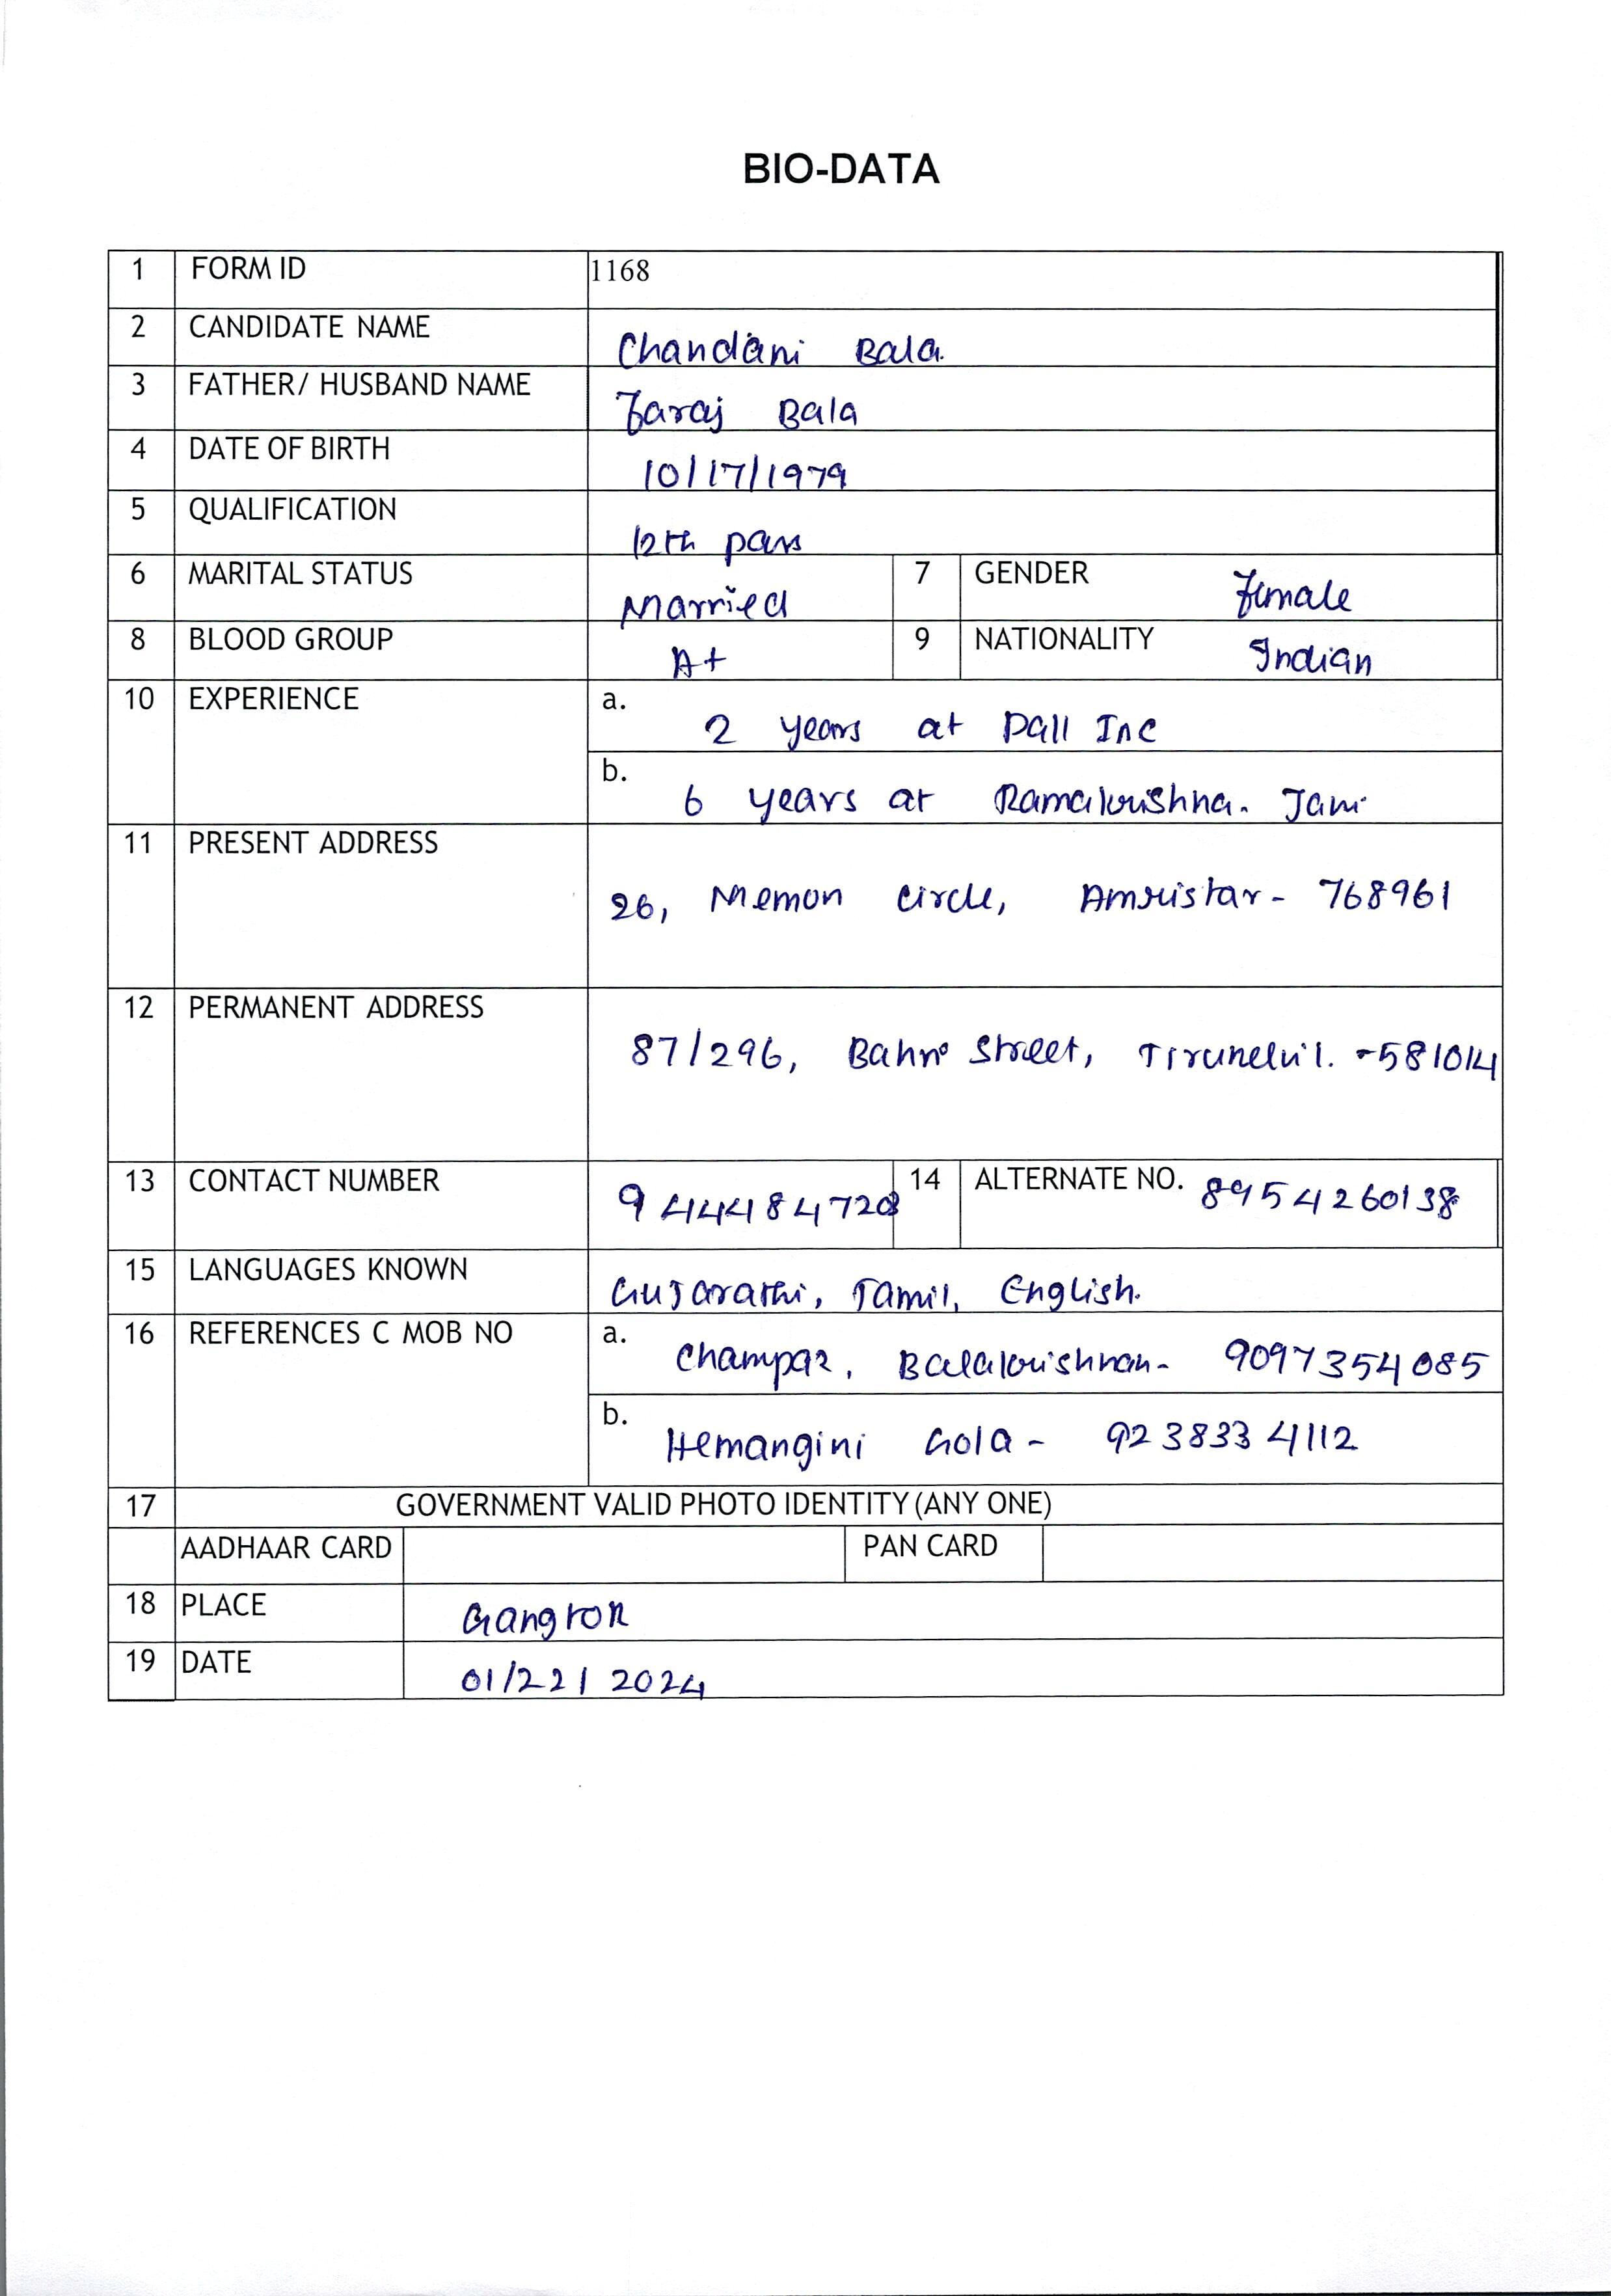 BIO-DATA
1 FORM ID 1168
2 CANDIDATE NAME Chandani Bala
3 FATHER/ HUSBAND NAME Faraj Bala
4 DATE OF BIRTH 10/17/1979
5 QUALIFICATION 12th pass
6 MARITAL STATUS Married 7 GENDER Female
8 BLOOD GROUP A+ 9 NATIONALITY Indian
10 EXPERIENCE a. 2 years at Dall Inc
b. 6 years at Ramakrishna. Jani
11 PRESENT ADDRESS
26, Memon circle, Amristar - 768961
12 PERMANENT ADDRESS
87/296, Street, - 581014
13 CONTACT NUMBER 9444184728 14 ALTERNATE NO. 8954260138
15 LANGUAGES KNOWN Gujarathi, Tamil, English.
16 REFERENCES C MOB NO a. Balakrishnan - 9097354085
b. Hemangini Gola - 9238334112
17 GOVERNMENT VALID PHOTO IDENTITY (ANY ONE)
AADHAAR CARD PAN CARD
18 PLACE Gangtok
19 DATE 01/22/2024